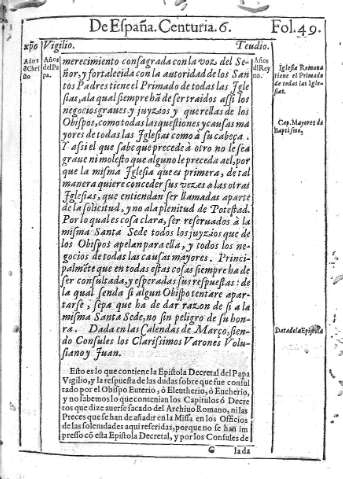 De España. Centuria. 6.
Fol. 49.
xpõ
Vigilio.
Teudio.
Años del Papa.
Años del Rey no.
merecimiento consagrada con la voz del Se-
ñor, y fortalecida con la autoridad de los San
tos Padres tiene el Primado de todas las Igle
sias, a la qual siempre hã de ser traidos assi los
negocios graves y juyzios y querellas de los
Obispos, como todas las questiones y causas ma
yores de todas las Iglesias como à su cabeça.
Y assi el que sabe que precede à otro no le sea
grave ni molesto que alguno le preceda a el, por
que la misma Iglesia que es primera, de tal
manera quiere conceder sus vezes a las otras
Iglesias, que entiendan ser llamadas a parte
de la solicitud, y no a la plenitud de Potestad.
Por lo qual es cosa clara, ser reservados à la
misma Santa Sede todos los juyzios que de
los Obispos apelan para ella, y todos los ne-
gocios de todas las causas mayores. Princi-
palmẽte que en todas estas cosas siempre ha de
ser consultada, y esperadas sus respuestas: de
la qual senda si algun Obispo tentare apar-
tarse, sepa que ha de dar razon de si a la
misma Santa Sede, no sin peligro de su hon-
ra. Dada en las Calendas de Março, sien-
do Consules los Clarissimos Varones Volu-
siano y Juan.
Esto es lo que contiene la Epistola Decretal del Papa
Vigilio, y la respuesta de las dudas sobre que fue consul
tado por el Obispo Euterio, ò Eleutherio, ò Eucherio,
y no sabemos lo que contenian los Capitulos ò Decre
tos que dize averse sacado del Archivo Romano, ni las
Preces que se han de añadir en la Missa en los Officios
de las solenidades aqui referidas, porque no se han im
presso cõ esta Epistola Decretal, y por los Consules de
G
lada
Iglesia Romana
tiene el Primado
de todas las Igle
sias.
Cap. Mayores de
Baptismo.
Data de la Epistola